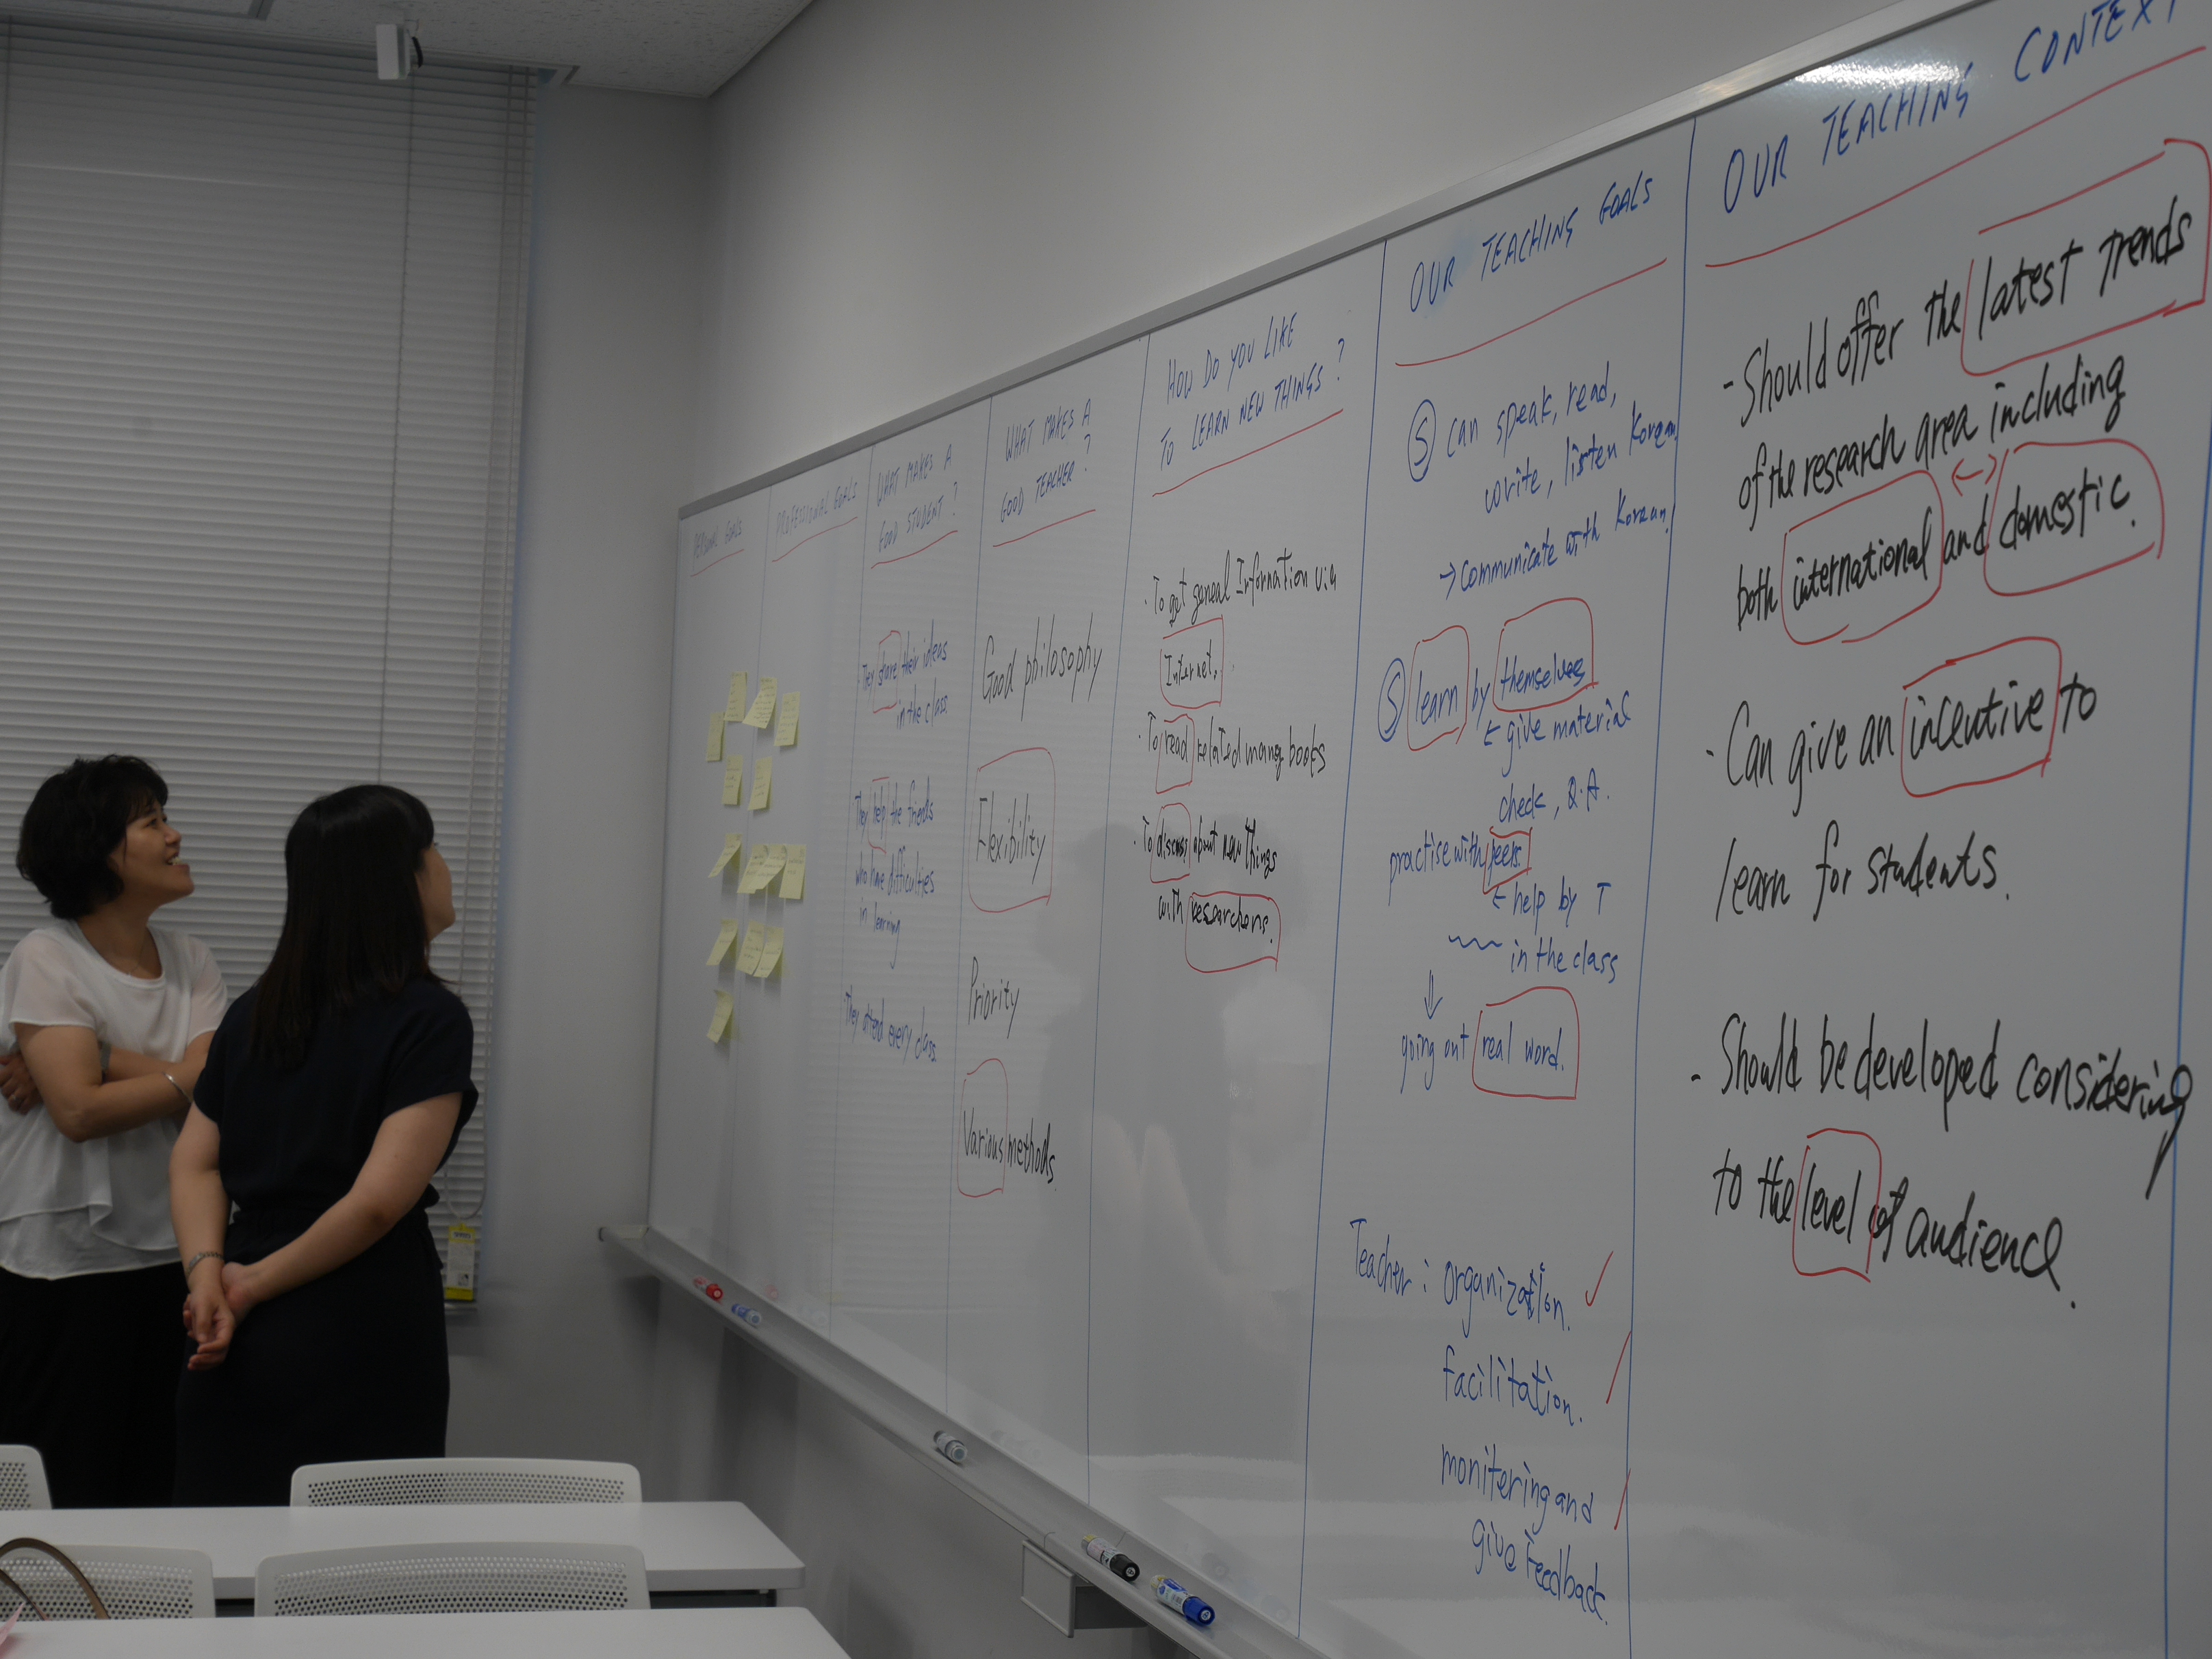 PERSONAL GOALS
PROFESSIONAL GOALS
WHAT MAKES A
GOOD STUDENT ?
They share their ideas
in the class
They help the friends
who have difficulties
in learning
They attend every class
WHAT MAKES A
GOOD TEACHER ?
Good philosophy
Flexibility
Priority
Various methods.
HOW DO YOU LIKE
TO LEARN NEW THINGS ?
· To get geneal Information via
Internet.
· To read related many books
· To discuss about new things
with researchers.
OUR TEACHING GOALS
Ⓢ can speak, read,
write, listen Korean.
→ communicate with Korean.
Ⓢ learn by themselves
← give material
check, Q.A.
practise with peers.
← help by T
in the class
⇓
going out real word.
Teacher : organization. ✓
facilitation.
monitering and
give Feedback.
OUR TEACHING CONTEXT
- Should offer the latest trends
of the research area including
both international and domestic.
- Can give an incentive to
learn for students.
- Should be developed considering
to the level of audience.